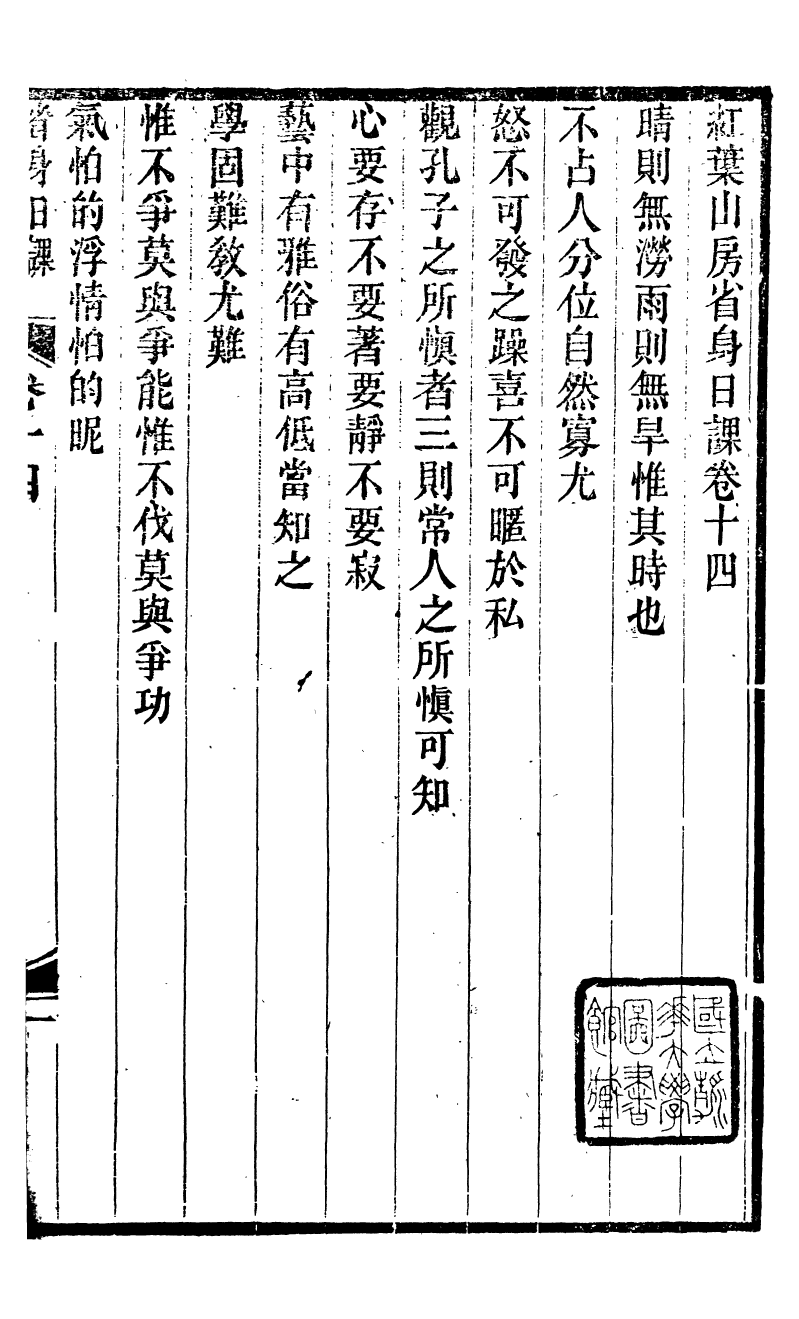 紅葉山房省身日課卷十四
晴則無澇雨則無旱惟其時也
不占人分位自然寡尤
怒不可發之躁喜不可暱於私
觀孔子之所愼者三則常人之所愼可知
心要存不要著要靜不要寂
藝中有雅俗有高低當知之
學固難敎尤難
惟不爭莫與爭能惟不伐莫與爭功
氣怕的浮情怕的昵
省身日課
卷十四
一
國立清華大學圖書館藏